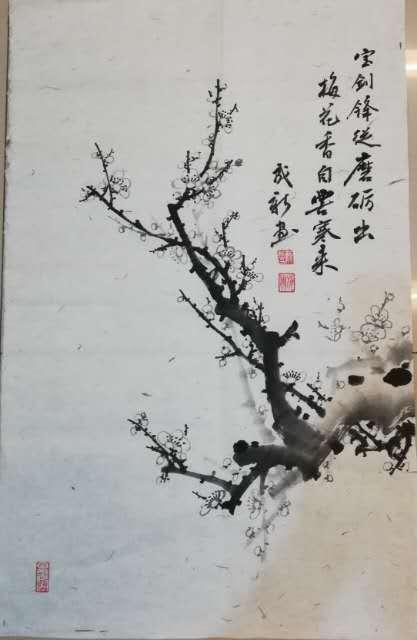 宝剑锋从磨砺出
梅花香自苦寒来
武新画